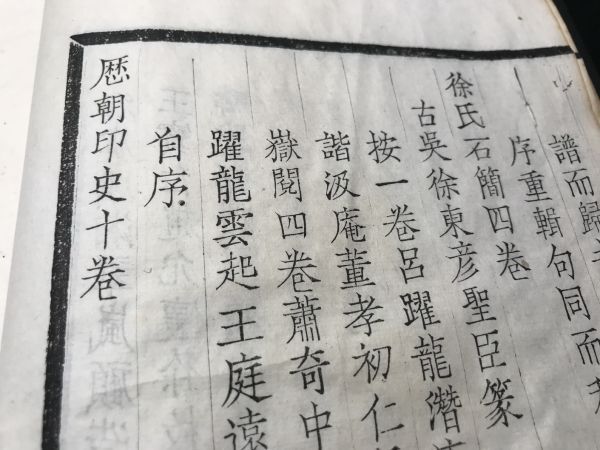 譜而歸
序重輯句同而
徐氏石簡四卷
古吳徐東彦聖臣篆
按一卷呂躍龍潛
諧汲庵董孝初仁
嶽閲四卷蕭奇中
躍龍雲起王庭遠
自序
歴朝印史十卷